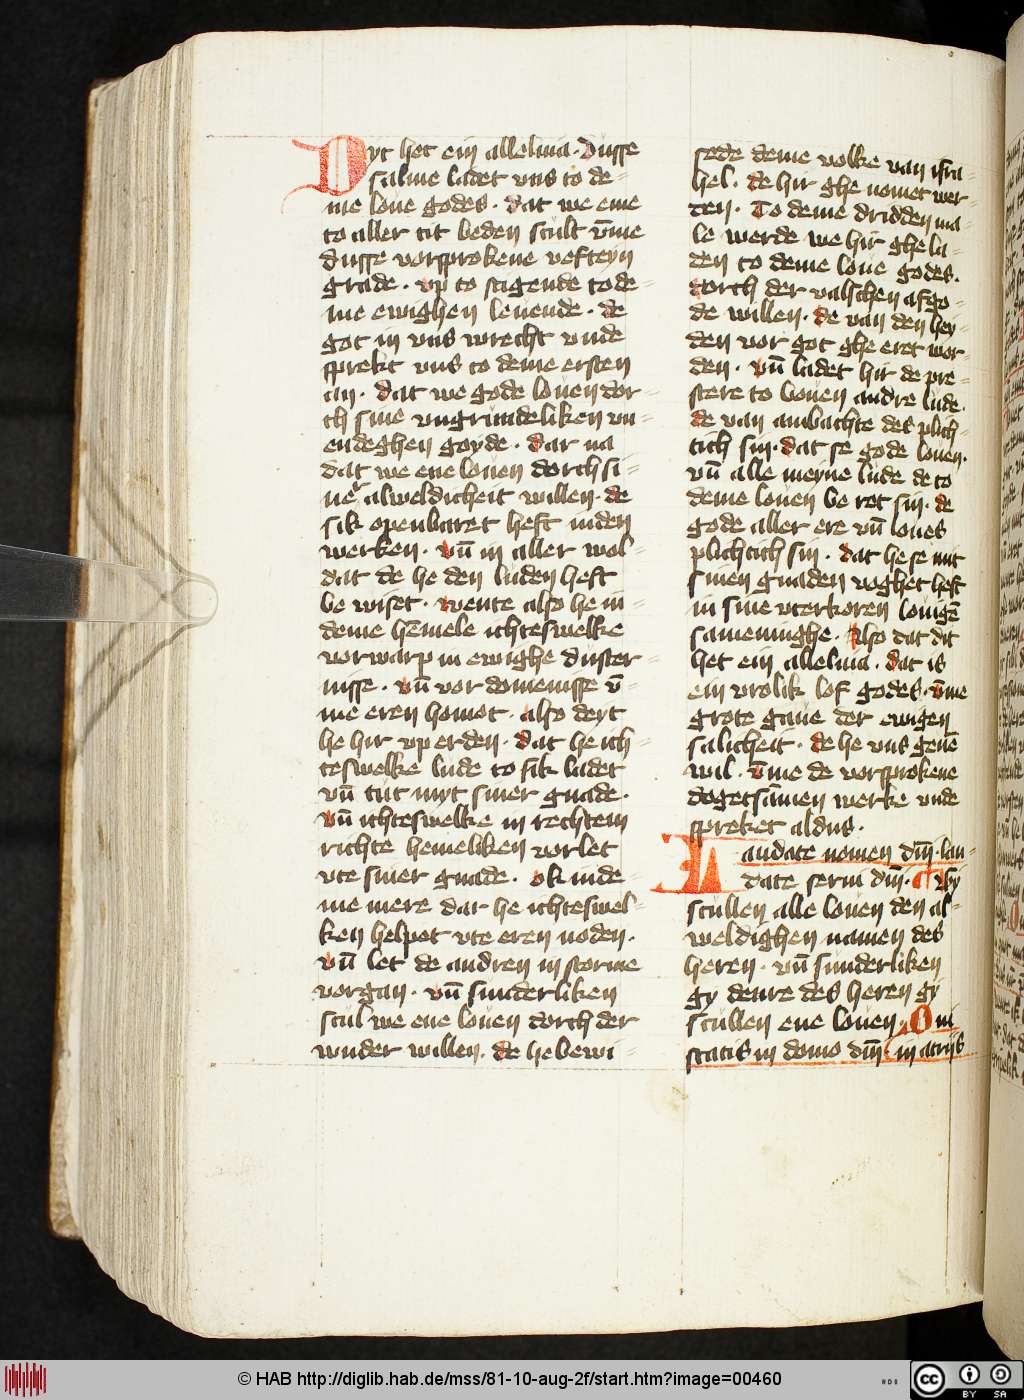 Dyt het ein alleluia · Dusse
salme ladet vns to de=
me loue godes · dat we eme
to aller tit beden scult vm̄e
dusse vorsprokene vefteyn
grade · vp to stigende to de=
me ewighen leuende · de
got in vns wrecht vnde
sprekt vns to deme ersten
an · dat we gode louen dor=
ch sine vngrundeliken vn=
endeghen goyde · dar na
dat we ene louen dorch si=
ner alweldicheit willen · de
sik openbaret heft inden
werken · vn̄ in aller wol=
dat de he den luden heft
be wiset · wente also he in=
deme hēmele ichteswelke
vorwarp in ewighe duster=
nisse · vn̄ vor domenisse v̄=
me eren homot · also deyt
he hir vp erden · dat he ich=
teswelke lude to sik ladet
vn̄ tut myt siner gnade ·
vn̄ ichteswelke in rechtem
richte hemeliken vorlet
vte siner gnade · ok inde=
me mere dat he ichteswel=
ken helpet vte eren noden ·
vn̄ let de andren in storme
vorgan · vn̄ sunderliken
scul we ene louen dorch der
wnder willen · de he bewi=
sede deme volke van isra=
hel · de hir ghe nomet wer=
den · To deme dridden ma=
le werde we hir ghe la=
den to deme loue godes ·
dorch der valschen afgo=
de willen · de van den hey=
den vor got ghe eret wor=
den · vn̄ ladet hir de pre=
stere to bouen andre lude ·
de van ambachte des plich=
tich sin · dat se gode louen ·
vn̄ alle meyne lude de to
deme louen be ret sin · de
gode aller ere vn̄ loues
plichtich sin · dat he se mit
sinen gnaden voghet heft
in sine vterkoren louigē
sameninghe · Also dat dit
het ein alleluia · dat is
ein vrolik lof godes · vm̄e
grote gaue der ewigen
salicheit · de he vns geuē
wil · vm̄e de vorsprokene
dogetsāmen werke vnde
spreket aldus ·
Laudate nomen dn̄i · lau=
date serui dn̄i · Wy
scullen alle louen den al=
weldighen namen des
heren · vn̄ sunderliken
gy denre des heren gy
scullen ene louen · Qui
statis in domo dn̄i · in atriis
© HAB http://diglib.hab.de/mss/81-10-aug-2f/start.htm?image=00460
cc BY SA